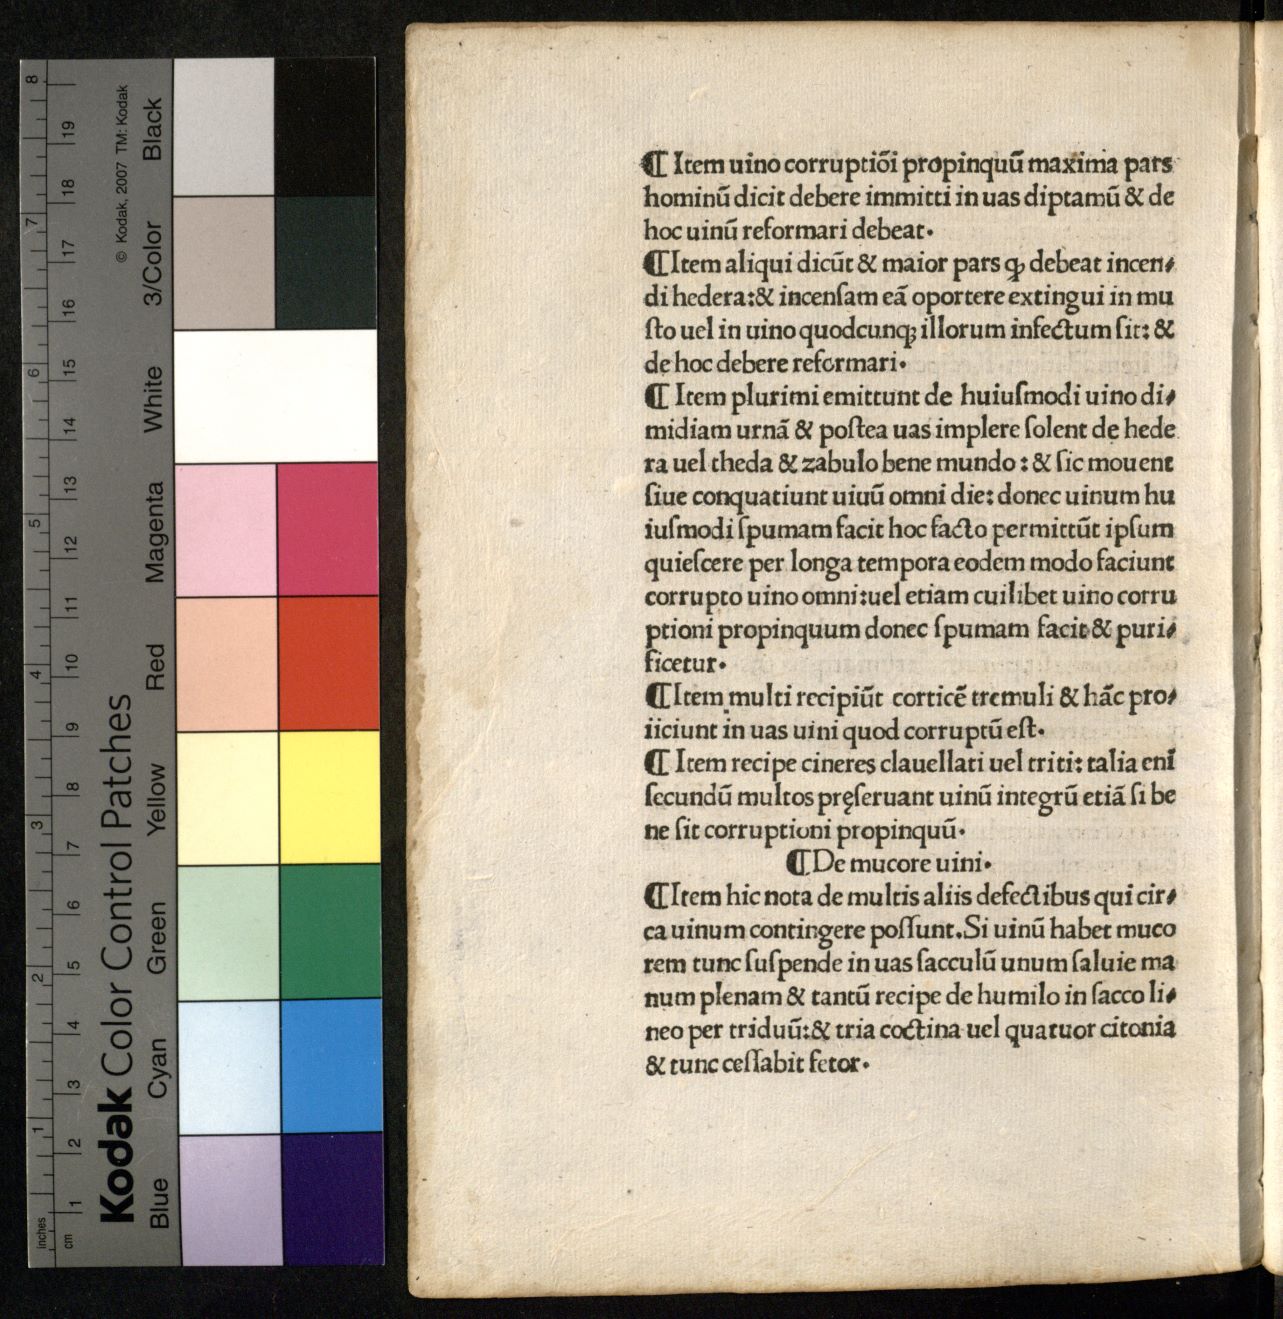 © Kodak, 2007 TM: Kodak
Kodak Color Control Patches
Blue Cyan Green Yellow Red Magenta White 3/Color Black
inches 1 2 3 4 5 6 7 8
cm 1 2 3 4 5 6 7 8 9 10 11 12 13 14 15 16 17 18 19
⸿ Item uino corruptiōi propinquū maxima pars
hominū dicit debere immitti in uas diptamū & de
hoc uinū reformari debeat.
⸿Item aliqui dicūt & maior pars ꝙ debeat incen⸗
di hedera:& incenſam eā oportere extingui in mu
ſto uel in uino quodcunqꝫ illorum infectum ſit: &
de hoc debere reformari.
⸿ Item plurimi emittunt de huiuſmodi uino di⸗
midiam urnā & poſtea uas implere ſolent de hede
ra uel theda & zabulo bene mundo : & ſic mouent
ſiue conquatiunt uiuū omni die: donec uinum hu
iuſmodi ſpumam facit hoc facto permittūt ipſum
quieſcere per longa tempora eodem modo faciunt
corrupto uino omni:uel etiam cuilibet uino corru
ptioni propinquum donec ſpumam facit & puri⸗
ficetur.
⸿Item multi recipiūt corticē tremuli & hāc pro⸗
iiciunt in uas uini quod corruptū eſt.
⸿ Item recipe cineres clauellati uel triti: talia enī
ſecundū multos pręſeruant uinū integrū etiā ſi be
ne ſit corruptioni propinquū.
⸿De mucore uini.
⸿Item hic nota de multis aliis defectibus qui cir⸗
ca uinum contingere poſſunt.Si uinū habet muco
rem tunc ſuſpende in uas ſacculū unum ſaluie ma
num plenam & tantū recipe de humilo in ſacco li⸗
neo per triduū:& tria coctina uel quatuor citonia
& tunc ceſſabit fetor.